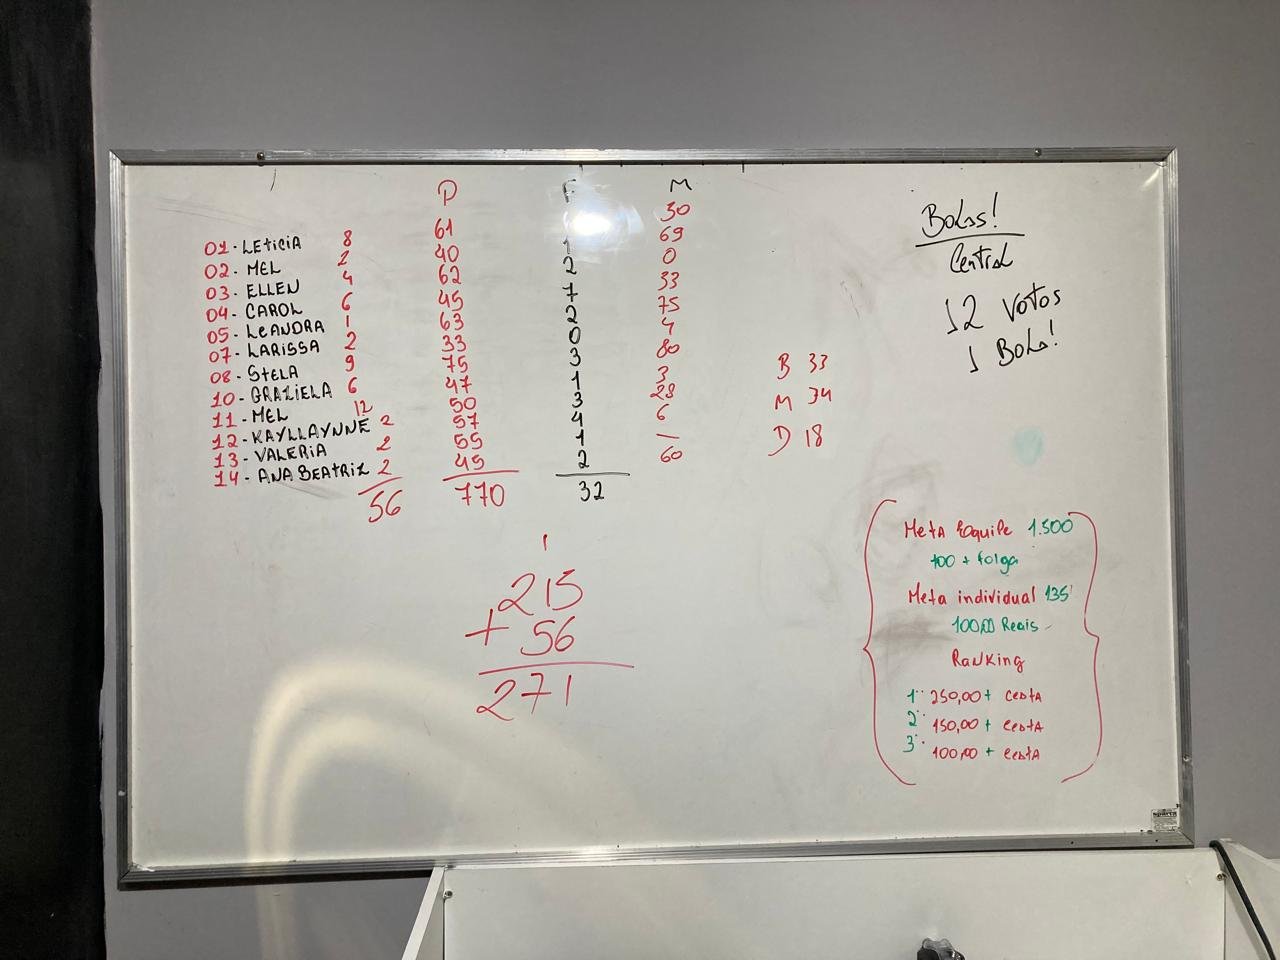 P F M
01- LETICIA 8 61 30
02- MEL 2 40 1 69
03- ELLEN 4 62 2 0
04- CAROL 6 45 7 33
05- LEANDRA 1 63 2 75
07- LARISSA 2 33 0 4
08- STELA 9 75 3 80
10- GRAZIELA 6 47 1 3
11- MEL 12 50 3 28
12- KAYLLAYNNE 2 57 4 6
13- VALERIA 2 55 1 —
14- ANA BEATRIZ 2 45 2 60
56 770 32
215
+ 56
271
B 33
M 34
D 18
Bolas!
Central
12 votos
1 Bola!
Meta Equipe 1.500
100 + folga
Meta individual 135
100,00 Reais
Ranking
1º: 250,00 + cesta
2º: 150,00 + cesta
3º: 100,00 + cesta